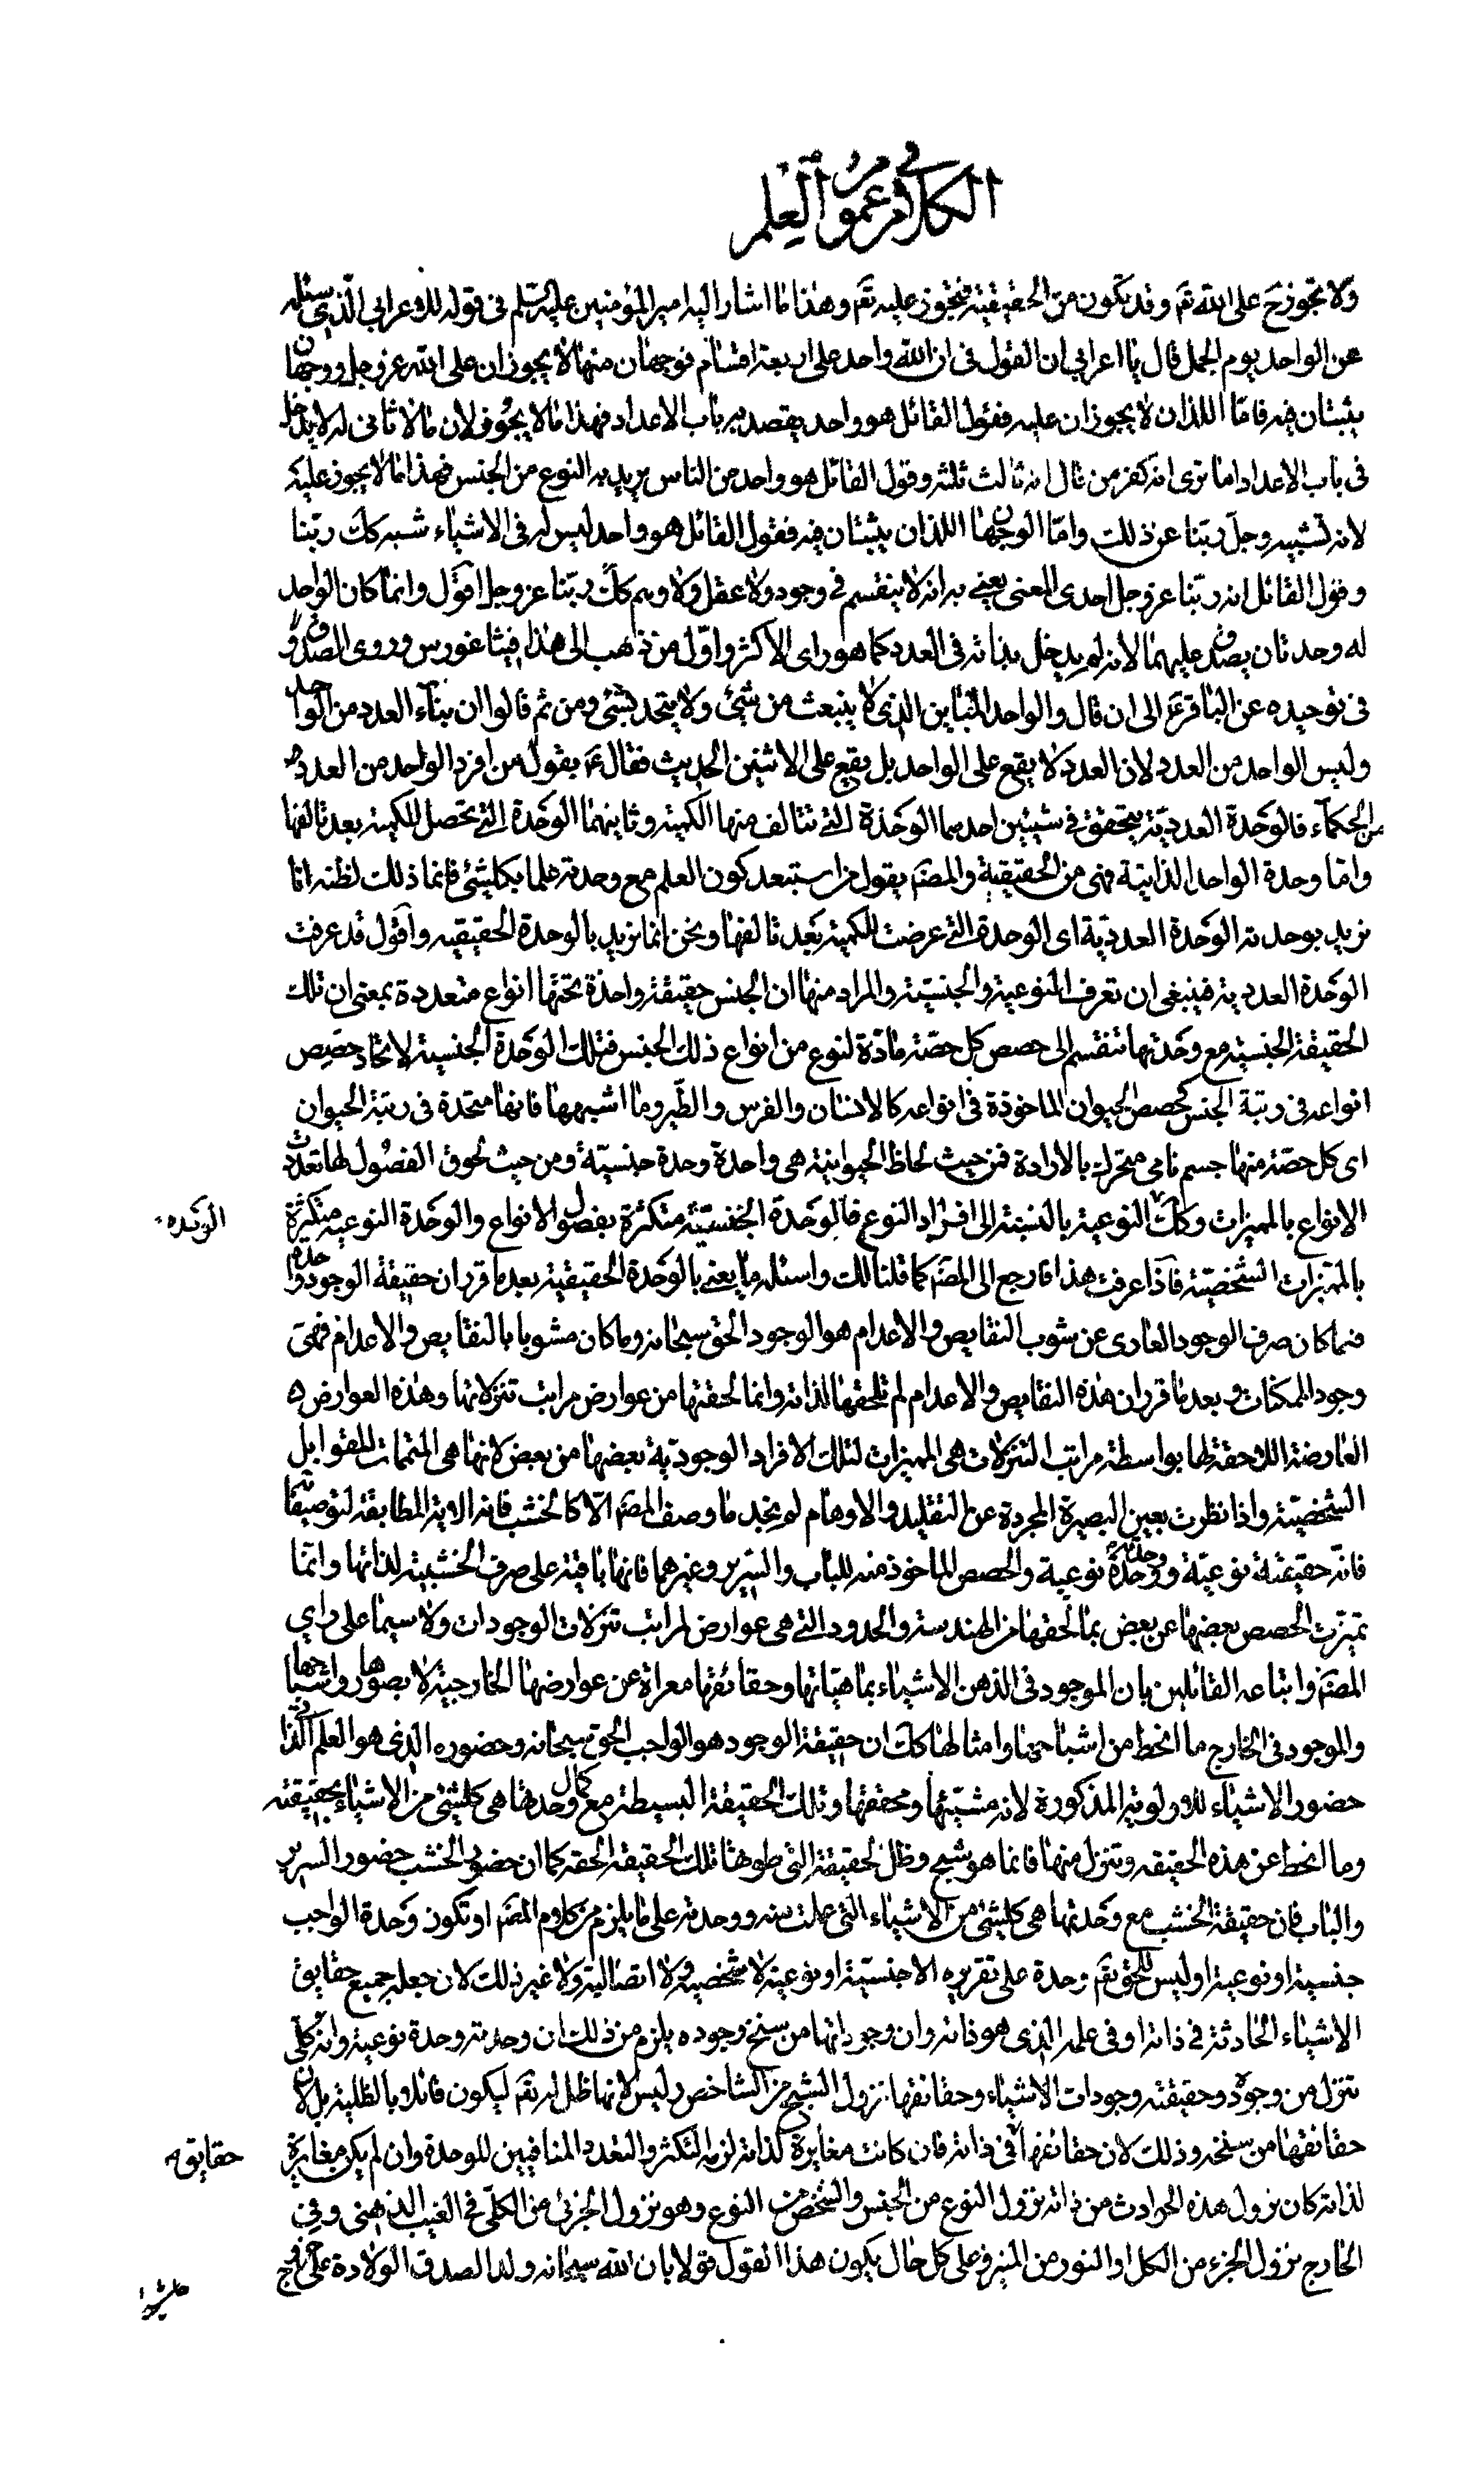 الكلام في عموم العلم
ولا تجوز ح على الله تع وقد تكون من الحقيقية فتجوز عليه تع وهذا ما اشار اليه امير المؤمنين عليه السلم فى قوله للاعرابي الذى سئله
عن الواحد يوم الجمل قال يا اعرابي ان القول فى ان الله واحد على اربعة اقسام فوجهان منها لا يجوزان على الله عز وجل ووجهان
يثبتان فيه فامّا اللذان لا يجوزان عليه فقول القائل هو واحد يقصد به باب الاعداد فهذا ما لا يجوز لان ما لا ثانى له لا يدخل
فى باب الاعداد اما ترى انه كفر من قال انه ثالث ثلثه وقول القائل هو واحد من الناس يريد به النوع من الجنس فهذا ما لا يجوز عليه
لانه تشبيه وجل ربّنا عن ذلك وامّا الوجهان اللذان يثبتان فيه فقول القائل هو واحد ليس له فى الاشياء شبه كك ربّنا
وقول القائل انه ربّنا عز وجل احدى المعنى يعنى به انه لا ينقسم فى وجود ولا عقل ولا وهم كك ربّنا عز وجل اقول وانما كان الواحد
له وحدتان يصدق عليهما لانه لم يدخل بذاته فى العدد كما هو راى الاكثر واوّل من ذهب الى هذا فيثاغورس وروى الصدوق
فى توحيده عن الباقر ع الى ان قال والواحد المتباين الذى لا ينبعث من شئ ولا يتحد بشئ ومن ثم قالوا ان بناء العدد من الواحد
وليس الواحد من العدد لان العدد لا يقع على الواحد بل يقع على الاثنين الحديث فقال ع بقول من افرد الواحد من العدد
من الحكماء فالوحدة العددية تتحقق فى شيئين احدهما الوحدة التى تتالف منها الكمية وثانيهما الوحدة التى تحصل للكمية بعد تالفها
وامّا وحدة الواحد الذاتية فهى من الحقيقية والمصنف يقول من استبعد كون العلم مع وحدته علما بكلشئ فانما ذلك لظنه انا
نريد بوحدته الوحدة العددية اى الوحدة التى عرضت للكمية بعد تالفها ونحن انما نريد بالوحدة الحقيقيه واقول قد عرفت
الوحدة العددية فينبغى ان تعرف النوعية والجنسيّة والمراد منها ان الجنس حقيقة واحدة تحتها انواع متعددة بمعنى ان تلك
الحقيقة الجنسية مع وحدتها تنقسم الى حصص كل حصّة مادّة لنوع من انواع ذلك الجنس فتلك الوحدة الجنسية لاتحاد حصص
انواعه فى رتبة الجنس كحصص الحيوان الماخوذة فى انواعه كالانسان والفرس والطّير وما اشبهها فانها متحدة فى رتبة الحيوان
اى كل حصّة منها جسم نامى متحرك بالارادة فمن حيث لحاظ الحيوانية هى واحدة وحدة جنسيّة ومن حيث لحوق الفصول لها تعددت
الانواع بالمميزات وكك النوعية بالنسبة الى افراد النوع فالوحدة الجنسيّة متكثرة بفصول الانواع والوحدة النوعية متكثرة
الوحده
بالمميّزات الشخصيّة فاذا عرفت هذا فارجع الى المصنف كما قلنا لك واسئله ما يعنى بالوحدة الحقيقية بعد ما قرر ان حقيقة الوجود واحدة
فما كان صرف الوجود العارى عن شوب النقايص والاعدام هو الوجود الحق سبحانه وما كان مشوبا بالنقايص والاعدام فهى
وجود الممكنات وبعد ما قرر ان هذه النقايص والاعدام لم تلحقها لذاته وانما لحقتها من عوارض مراتب تنزلاتها وهذه العوارض
العارضة اللاحقة لها بواسطة مراتب التنزلات هى المميزات لتلك الافراد الوجوديّة بعضها من بعض لانها هى المتممات للقوابل
الشخصيّة واذا نظرت بعين البصيرة المجردة عن التقليد والاوهام لم تجد ما وصف المصنف الّا كالخشب فانه الاية المطابقة لتوصيفه
فانّه حقيقة نوعيّة ووحدته وحدة نوعية والحصص الماخوذ منه للباب والسّرير وغيرهما فانها باقية على صرف الخشبية لذاتها وانّما
تميّزت الحصص بعضها عن بعض بما لحقها من الهندسة والحدود التى هى عوارض لمراتب تنزلات الوجودات ولا سيما على راى
المصنف واتباعه القائلين بان الموجود فى الذهن الاشياء بماهيّاتها وحقائقها معراة عن عوارضها الخارجية لا بصورها واشباحها
والموجود فى الخارج ما انحط من اشباحها وامثالها كك ان حقيقة الوجود هو الواجب الحق سبحانه وحضوره الذى هو العلم الذاتى
حضور الاشياء للاولوية المذكورة لانه مشيّئها ومحققها وتلك الحقيقة البسيطة مع كمال وحدتها هى كلشئ من الاشياء بحقيقته
وما انحط عن هذه الحقيقه وتنزل منها فانما هو شبح وظل لحقيقة التى طوتها تلك الحقيقه الحقه كما ان حضور الخشب حضور السرير
والباب فان حقيقة الخشب مع وحدتها هى كلشئ من الاشياء التى عملت منه ووحدته على ما يلزم من كلام المصنف او تكون وحدة الواجب
جنسية او نوعية او ليس للحق تع وحدة على تقريره الا جنسيّة او نوعية لا شخصية ولا اتصالية ولا غير ذلك لان جعله جميع حقايق
الاشياء الحادثة فى ذاته او فى علمه الذى هو ذاته وان وجوداتها من سنخ وجوده يلزم من ذلك ان وحدته وحدة نوعية وانه كلّى
تنزل من وجوده وحقيقته وجودات الاشياء وحقائقها نزول الشبح من الشاخص وليس لانها ظل له تع ليكون قائلا بالظلية بل لان
حقائقها من سنخه وذلك لان حقائقها فى ذاته فان كانت مغايرة لذاته لزمه التكثر والتعدد المنافيين للوحدة وان لم يكن مغايرة
حقايق
لذاته كان نزول هذه الحوادث من ذاته نزول النوع من الجنس والشخص من النوع وهو نزول الجزئى من الكلّى فى الغيب الذهنى وفى
الخارج نزول الجزء من الكل او النور من المنير وعلى كل حال يكون هذا القول قولا بان الله سبحانه ولد لصدق الولادة على خروج